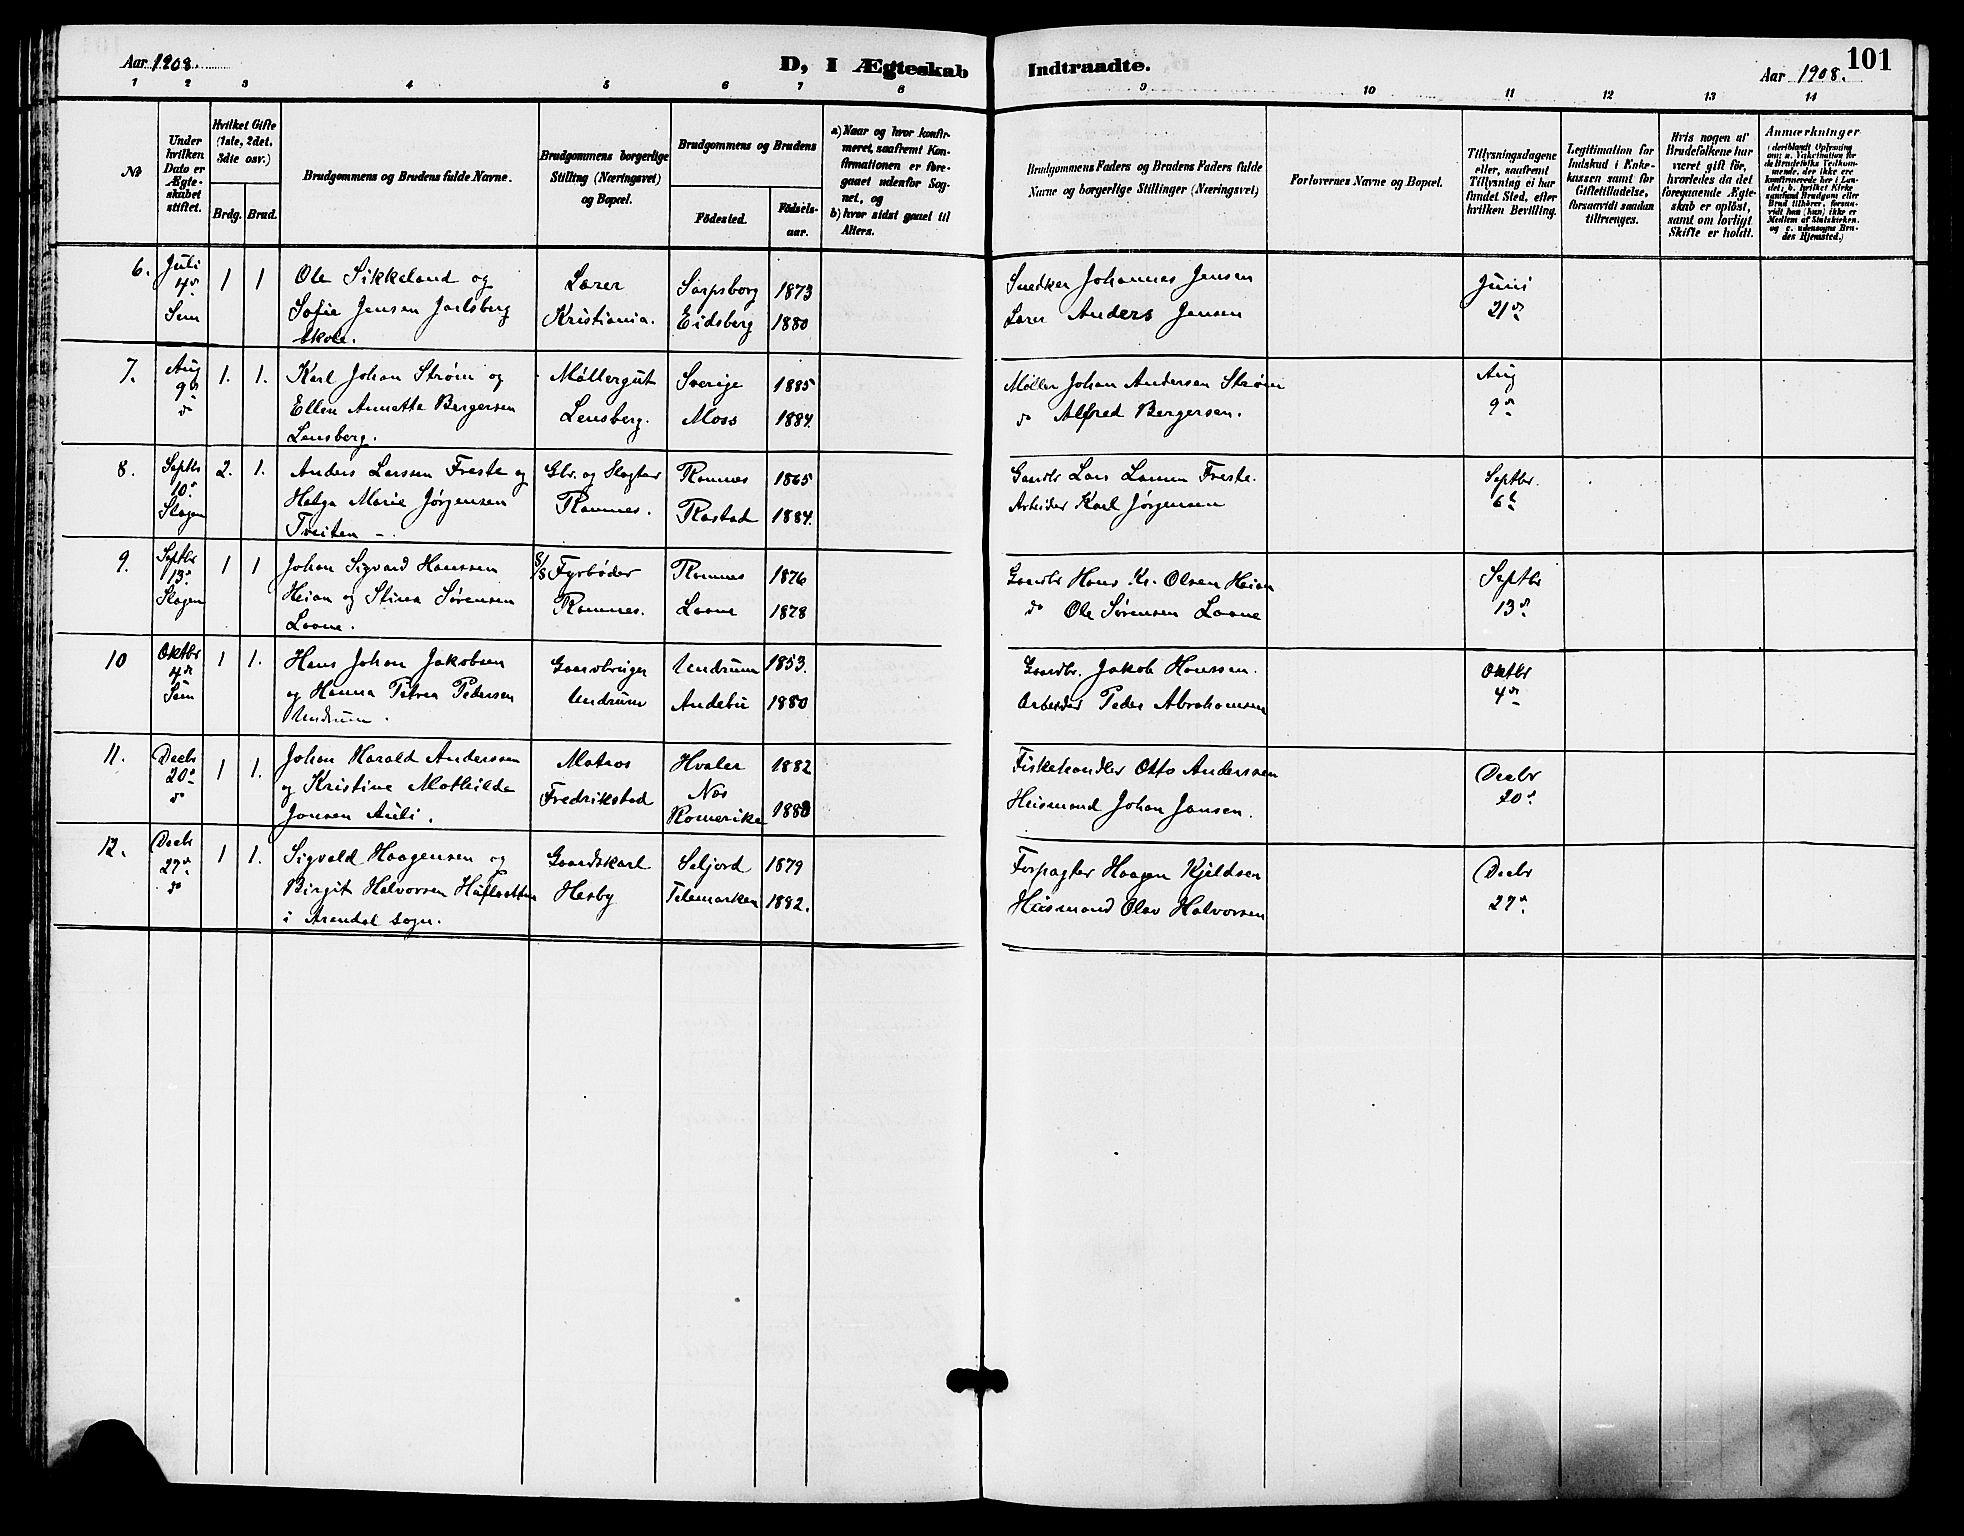 Aar 1908.
D, I Ægteskab Indtraadte.
101
Aar 1908.
1 2 3 4 5 6 7 8 9 10 11 12 13 14
No
Under hvilken Dato er Ægteskabet stiftet.
Hvilket Gifte (1ste, 2det, 3die osv.)
Brdg. Brud.
Brudgommens og Brudens fulde Navne.
Brudgommens borgerlige Stilling (Næringsvei) og Bopæl.
Brudgommens og Brudens
Födested. Födsels-aar.
a) Naar og hvor konfirmeret, saafremt Konfirmationen er foregaaet udenfor Sognet, og
b) hvor sidst gaaet til Alters.
Brudgommens Faders og Brudens Faders fulde Navne og borgerlige Stillinger (Næringsvei)
Forlovernes Navne og Bopæl.
Tillysningsdagene eller, saafremt Tillysning ei har fundet Sted, efter hvilken Bevilling.
Legitimation for Indskud i Enkekassen samt for Giftetilladelse, forsaavidt saadan tiltrænges.
Hvis nogen af Brudefolkene har været gift för, hvorledes da det foregaaende Ægteskab er oplöst, samt om lovligt Skifte er holdt.
Anmærkninger
6. Juli 1 1 Ole Sikkeland og Lærer Sarpsborg 1873 Snedker Johannes Jensen Juni
4de Sem Sofie Jensen Jarlsberg Kristiania. Eidsberg 1880 Lærer Anders Jensen 21de
Skole.
7. Aug 1. 1. Karl Johan Strøm og Møllergut Sverige 1885 Møller Johan Andersen Strøm Aug
9de do Ellen Annette Bergersen Lensberg. Moss 1884. do Alfred Bergersen. 9de
Lensberg.
8. Septbr 2. 1. Anders Larsen Freste og Gbr. og Slagter Ramnes 1865 Gaardbr Lars Larsen Freste. Septbr.
10de Slagen Helga Marie Jørgensen Ramnes. Rastad 1884. Arbeider Karl Jørgensen 6te
Tveiten -.
9. Septbr 1 1 Johan Sigvard Hanssen S/S Fyrbøder Ramnes 1876 Gaardbr Hans Kr. Olsen Heian Septbr
13de Slagen Heian og Stina Sørensen Ramnes. Lovne 1878 do Ole Sørensen Lovne 13de
Lovne.
10 Oktbr 1 1. Hans Johan Jakobsen Gaardbruger Undrum 1853. Gaardbr. Jakob Hanssen. Oktbr
4de Sem og Hanna Petrea Pedersen Undrum Andebu 1880 Arbeider Peder Abrahamsen 4de
Undrum.
11. Decbr 1 1. Johan Harald Anderssen Matros Hvaler 1882 Fiskehandler Otto Anderssen Decbr
20de do og Kristine Mathilde Fredrikstad Nes Romerike 1888 Husmand Johan Jansen. 20de
Jansen Auli.
12. Decbr 1 1. Sigvald Haagensen og Gaardskarl Seljord 1879 Forpagter Haagen Kjeldsen Decbr
27de do Birgit Halvorsen Hesby Telemarken 1882. Husmand Olav Halvorsen 27de
i Arendal sogn.